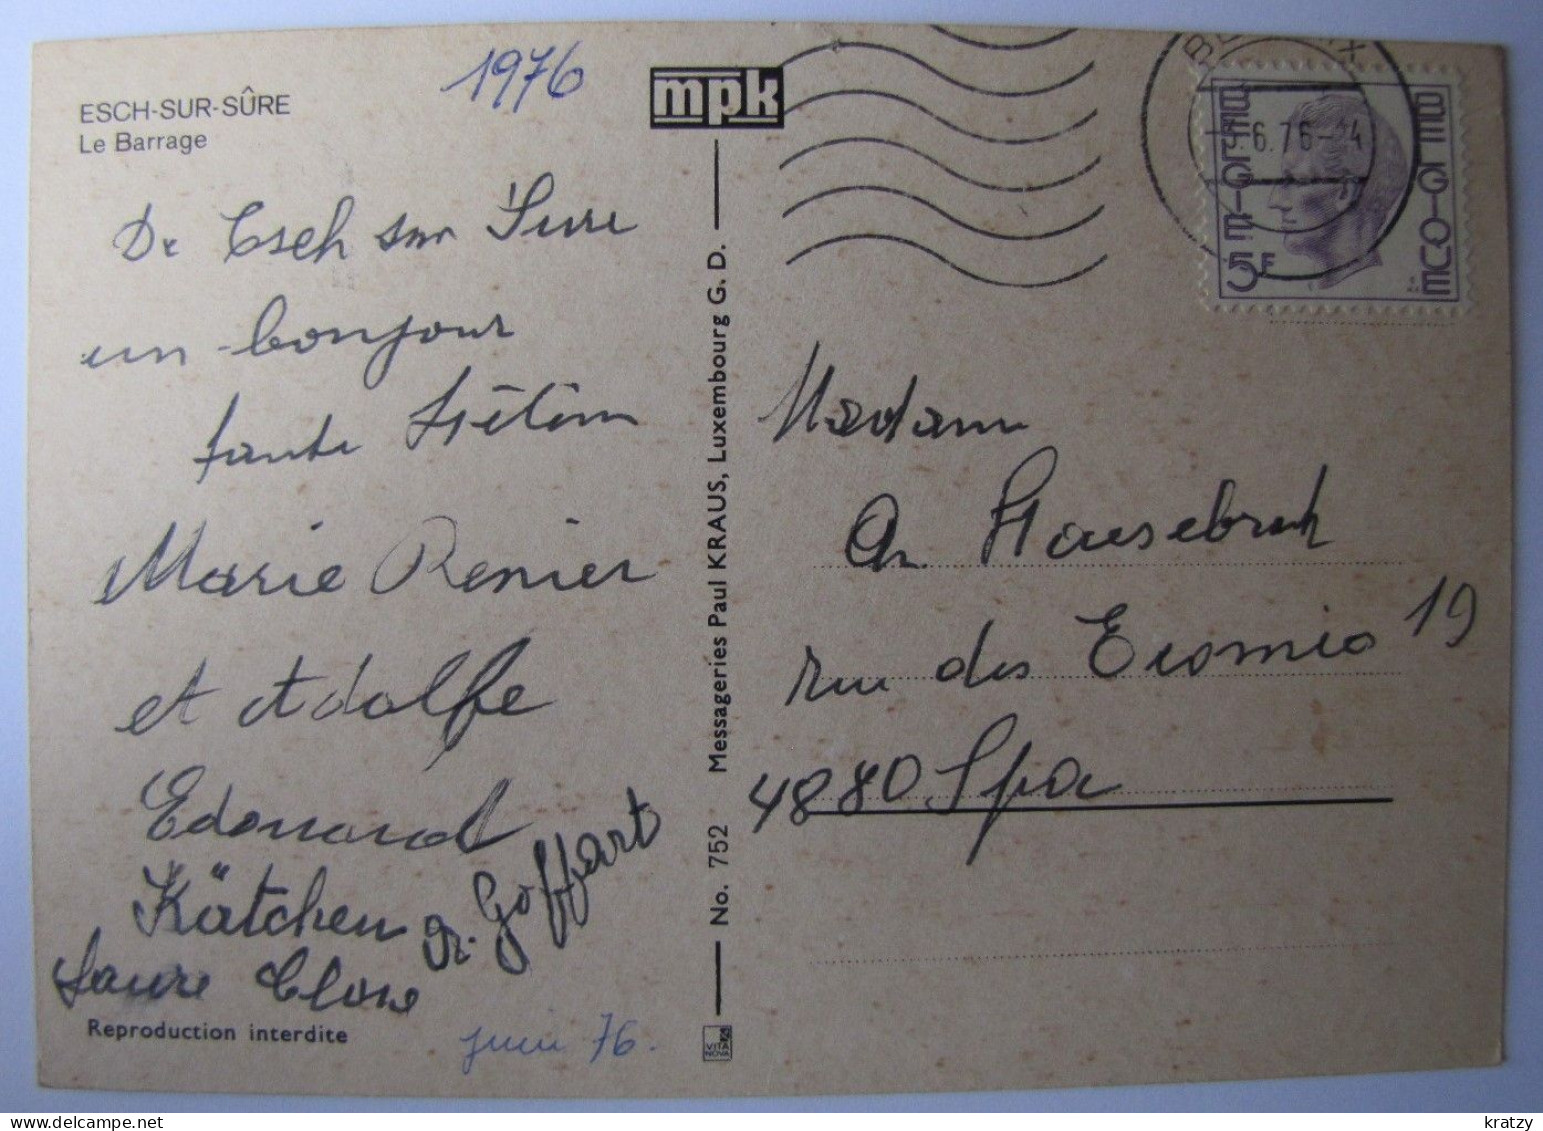 1976
ESCH-SUR-SÛRE
Le Barrage
mpk
De Esch sur Sure
un bonjour
tante
Marie Renier
et Adolfe
Edouard
Kätchen
Goffart
Laure
Reproduction interdite
juin 76.
No. 752 Messageries Paul KRAUS, Luxembourg G. D.
VITA NOVA
6.76-24
BELGIQUE
BELGIË
5F
Madame
rue des 19
4880 Spa
kratzy